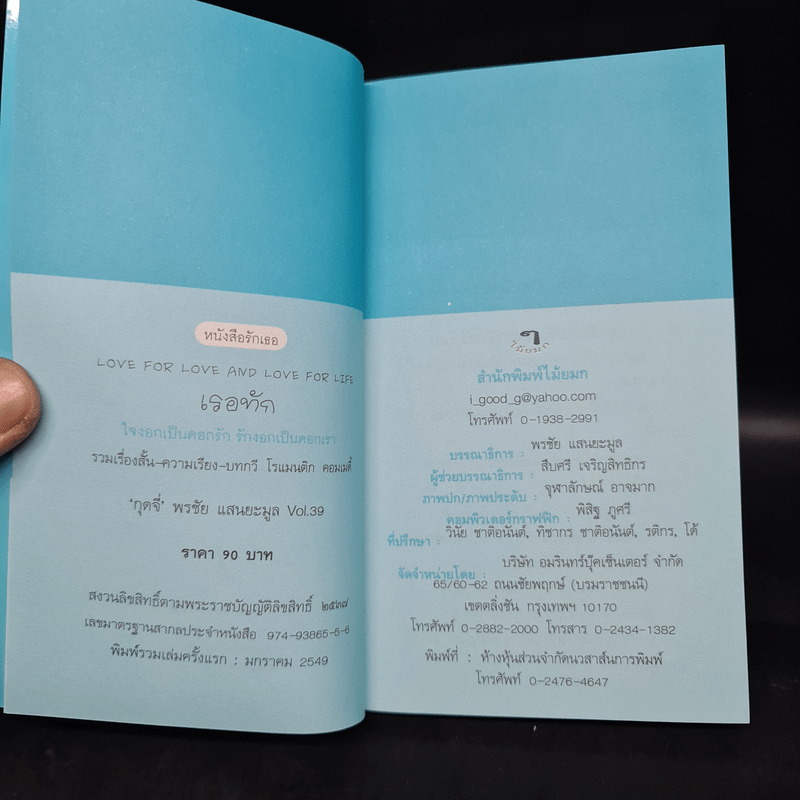 หนังสือรักเธอ
LOVE FOR LOVE AND LOVE FOR LIFE
เรอทัก
ใจงอกเป็นดอกรัก รักงอกเป็นดอกเรา
รวมเรื่องสั้น-ความเรียง-บทกวี โรแมนติก คอมเมดี้
'กุดจี่' พรชัย แสนยะมูล Vol.39
ราคา 90 บาท
สงวนลิขสิทธิ์ตามพระราชบัญญัติลิขสิทธิ์ ๒๕๓๗
เลขมาตรฐานสากลประจำหนังสือ 974-93865-5-6
พิมพ์รวมเล่มครั้งแรก : มกราคม 2549
ๆ
ไม้ยมก
สำนักพิมพ์ไม้ยมก
i_good_g@yahoo.com
โทรศัพท์ 0-1938-2991
บรรณาธิการ : พรชัย แสนยะมูล
ผู้ช่วยบรรณาธิการ : สืบศรี เจริญสิทธิกร
ภาพปก/ภาพประดับ : จุฬาลักษณ์ อาจมาก
คอมพิวเตอร์กราฟฟิก : พิสิฐ ภูศรี
ที่ปรึกษา : วินัย ชาติอนันต์, ทิชากร ชาติอนันต์, รติกร, โด้
จัดจำหน่ายโดย : บริษัท อมรินทร์บุ๊คเซ็นเตอร์ จำกัด
65/60-62 ถนนชัยพฤกษ์ (บรมราชชนนี)
เขตตลิ่งชัน กรุงเทพฯ 10170
โทรศัพท์ 0-2882-2000 โทรสาร 0-2434-1382
พิมพ์ที่ : ห้างหุ้นส่วนจำกัดนวสาส์นการพิมพ์
โทรศัพท์ 0-2476-4647